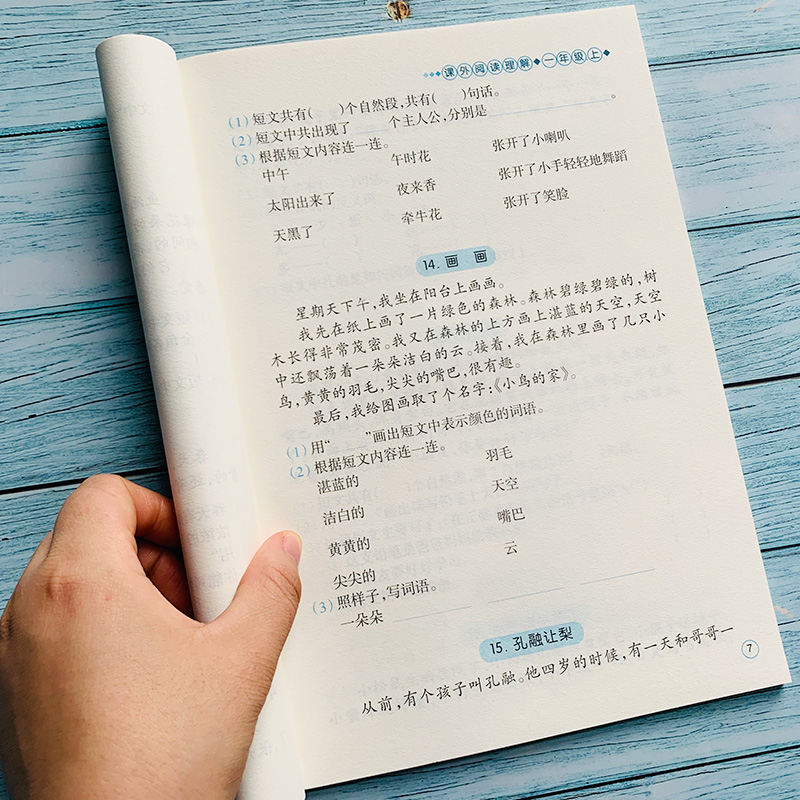 课外阅读理解◆一年级上
(1) 短文共有(  )个自然段,共有(  )句话。
(2) 短文中共出现了____个主人公,分别是____________。
(3) 根据短文内容连一连。
中午 午时花 张开了小喇叭
太阳出来了 夜来香 张开了小手轻轻地舞蹈
天黑了 牵牛花 张开了笑脸
14. 画 画
星期天下午,我坐在阳台上画画。
我先在纸上画了一片绿色的森林。森林碧绿碧绿的,树
木长得非常茂密。我又在森林的上方画上湛蓝的天空,天空
中还飘荡着一朵朵洁白的云。接着,我在森林里画了几只小
鸟,黄黄的羽毛,尖尖的嘴巴,很有趣。
最后,我给图画取了个名字:《小鸟的家》。
(1) 用“____”画出短文中表示颜色的词语。
(2) 根据短文内容连一连。
湛蓝的 羽毛
洁白的 天空
黄黄的 嘴巴
尖尖的 云
(3) 照样子,写词语。
一朵朵 ________ ________ ________
15. 孔融让梨
从前,有个孩子叫孔融。他四岁的时候,有一天和哥哥一
7